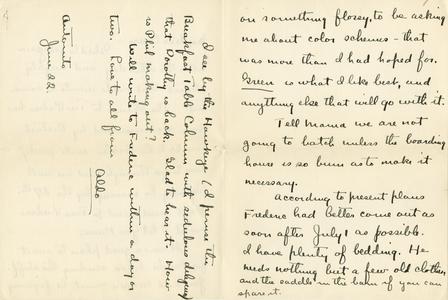 on something flossy, to be asking
me about color schemes - that
was more than I had hoped for.
Green is what I like best, and
anything else that will go with it.
Tell mama we are not
going to batch unless the boarding
house is so bum as to make it
necessary.
According to present plans
Frederic had better come out as
soon after July 1 as possible.
I have plenty of bedding. He
needs nothing but a few old clothes
and the saddle in the barn if you can
spare it.
I see by the Hawkeye (I peruse the
Breakfast Table Column with sedulous delight)
that Dorothy is back. Glad to hear it. How
is Phil making out?
Will write to Frederic within a day or
two. Love to all from
Aldo
Antonito
June 22